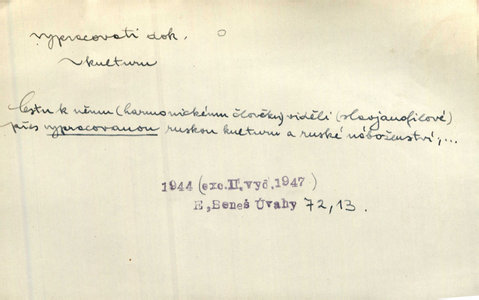 vypracovati dok.
kulturu
Cestu k němu (harmonickému člověku) viděli (slavjanofilové)
přes vypracovanou ruskou kulturu a ruské náboženství,...
1944 (exc.II.vyd.1947)
E,Beneš Úvahy 72,13.